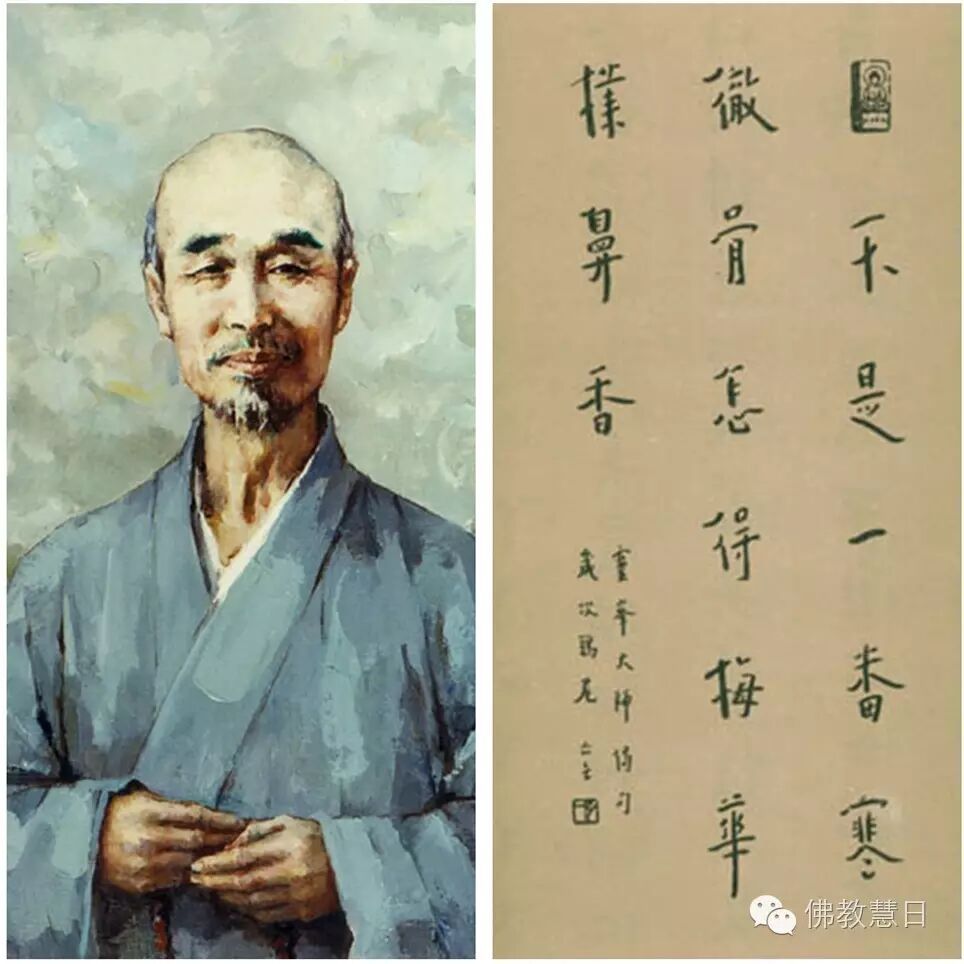 不是一番寒
徹骨怎得梅華
撲鼻香
靈峯大師偈句
歲次
佛教慧日